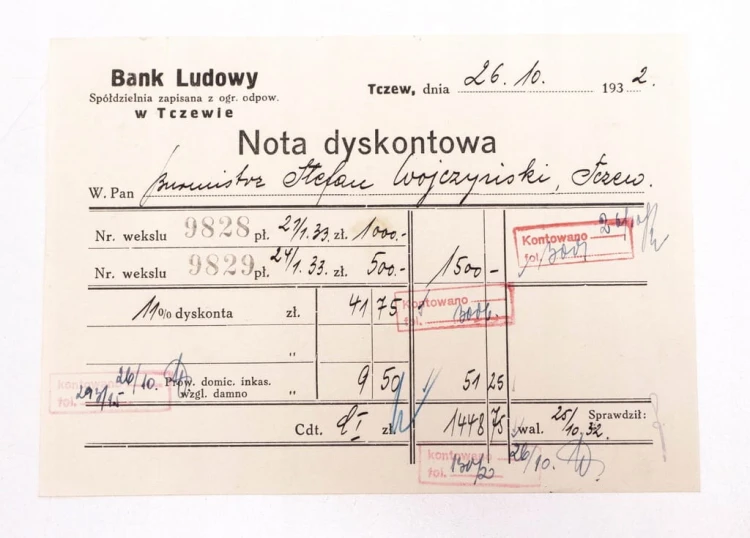 Bank Ludowy
Spółdzielnia zapisana z ogr. odpow.
w Tczewie
Tczew, dnia 26. 10. 1932.
Nota dyskontowa
W. Pan Burmistrz Stefan Wojczyński, Tczew.
Nr. wekslu 9828 pł. 27/1.33. zł. 1000.-
Nr. wekslu 9829 pł. 24/1.33. zł. 500.- 1500 -
Kontowano
fol.
11% dyskonta zł. 41 75
Kontowano
fol.
"
kontowano 26/10.
fol.
Prow. domic. inkas.
wzgl. damno " 9 50 51 25
Cdt. zł. 1448 75 wal. 25/10.32. Sprawdził:
kontowano 26/10.
fol.